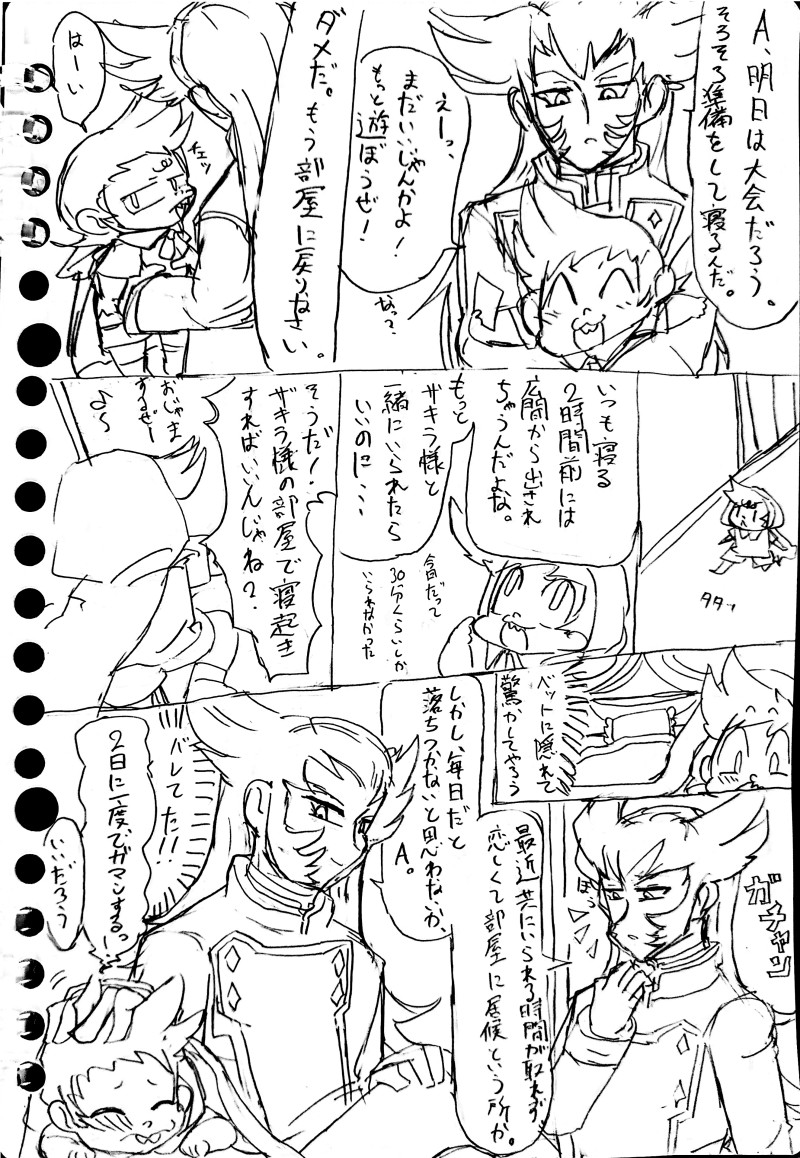 A、明日は大会だろう。
そろそろ準備をして寝るんだ。
えーっ、
まだいいじゃんかよ！
もっと遊ぼうぜ！
なって？
ダメだ。もう部屋に戻りなさい。
チェッ
はーい
タタッ
いつも寝る
2時間前には
広間から出され
ちゃうんだよな。
もっと
ザキラ様と
一緒にいられたら
いいのに、、、
今日だって
30分くらいしか
いられなかった
そうだ！
ザキラ様の部屋で寝起き
すればいいんじゃね？
おじゃま
するぜー
♪〜
ベットに隠れて
驚かしてやろう
ガチャン
最近共にいられる時間が取れず、
恋しくて部屋に居候という所か。
しかし、毎日だと
落ちつかないと思わないか、
A。
バレてた!!
2日に一度でガマンするっ…
いいだろう